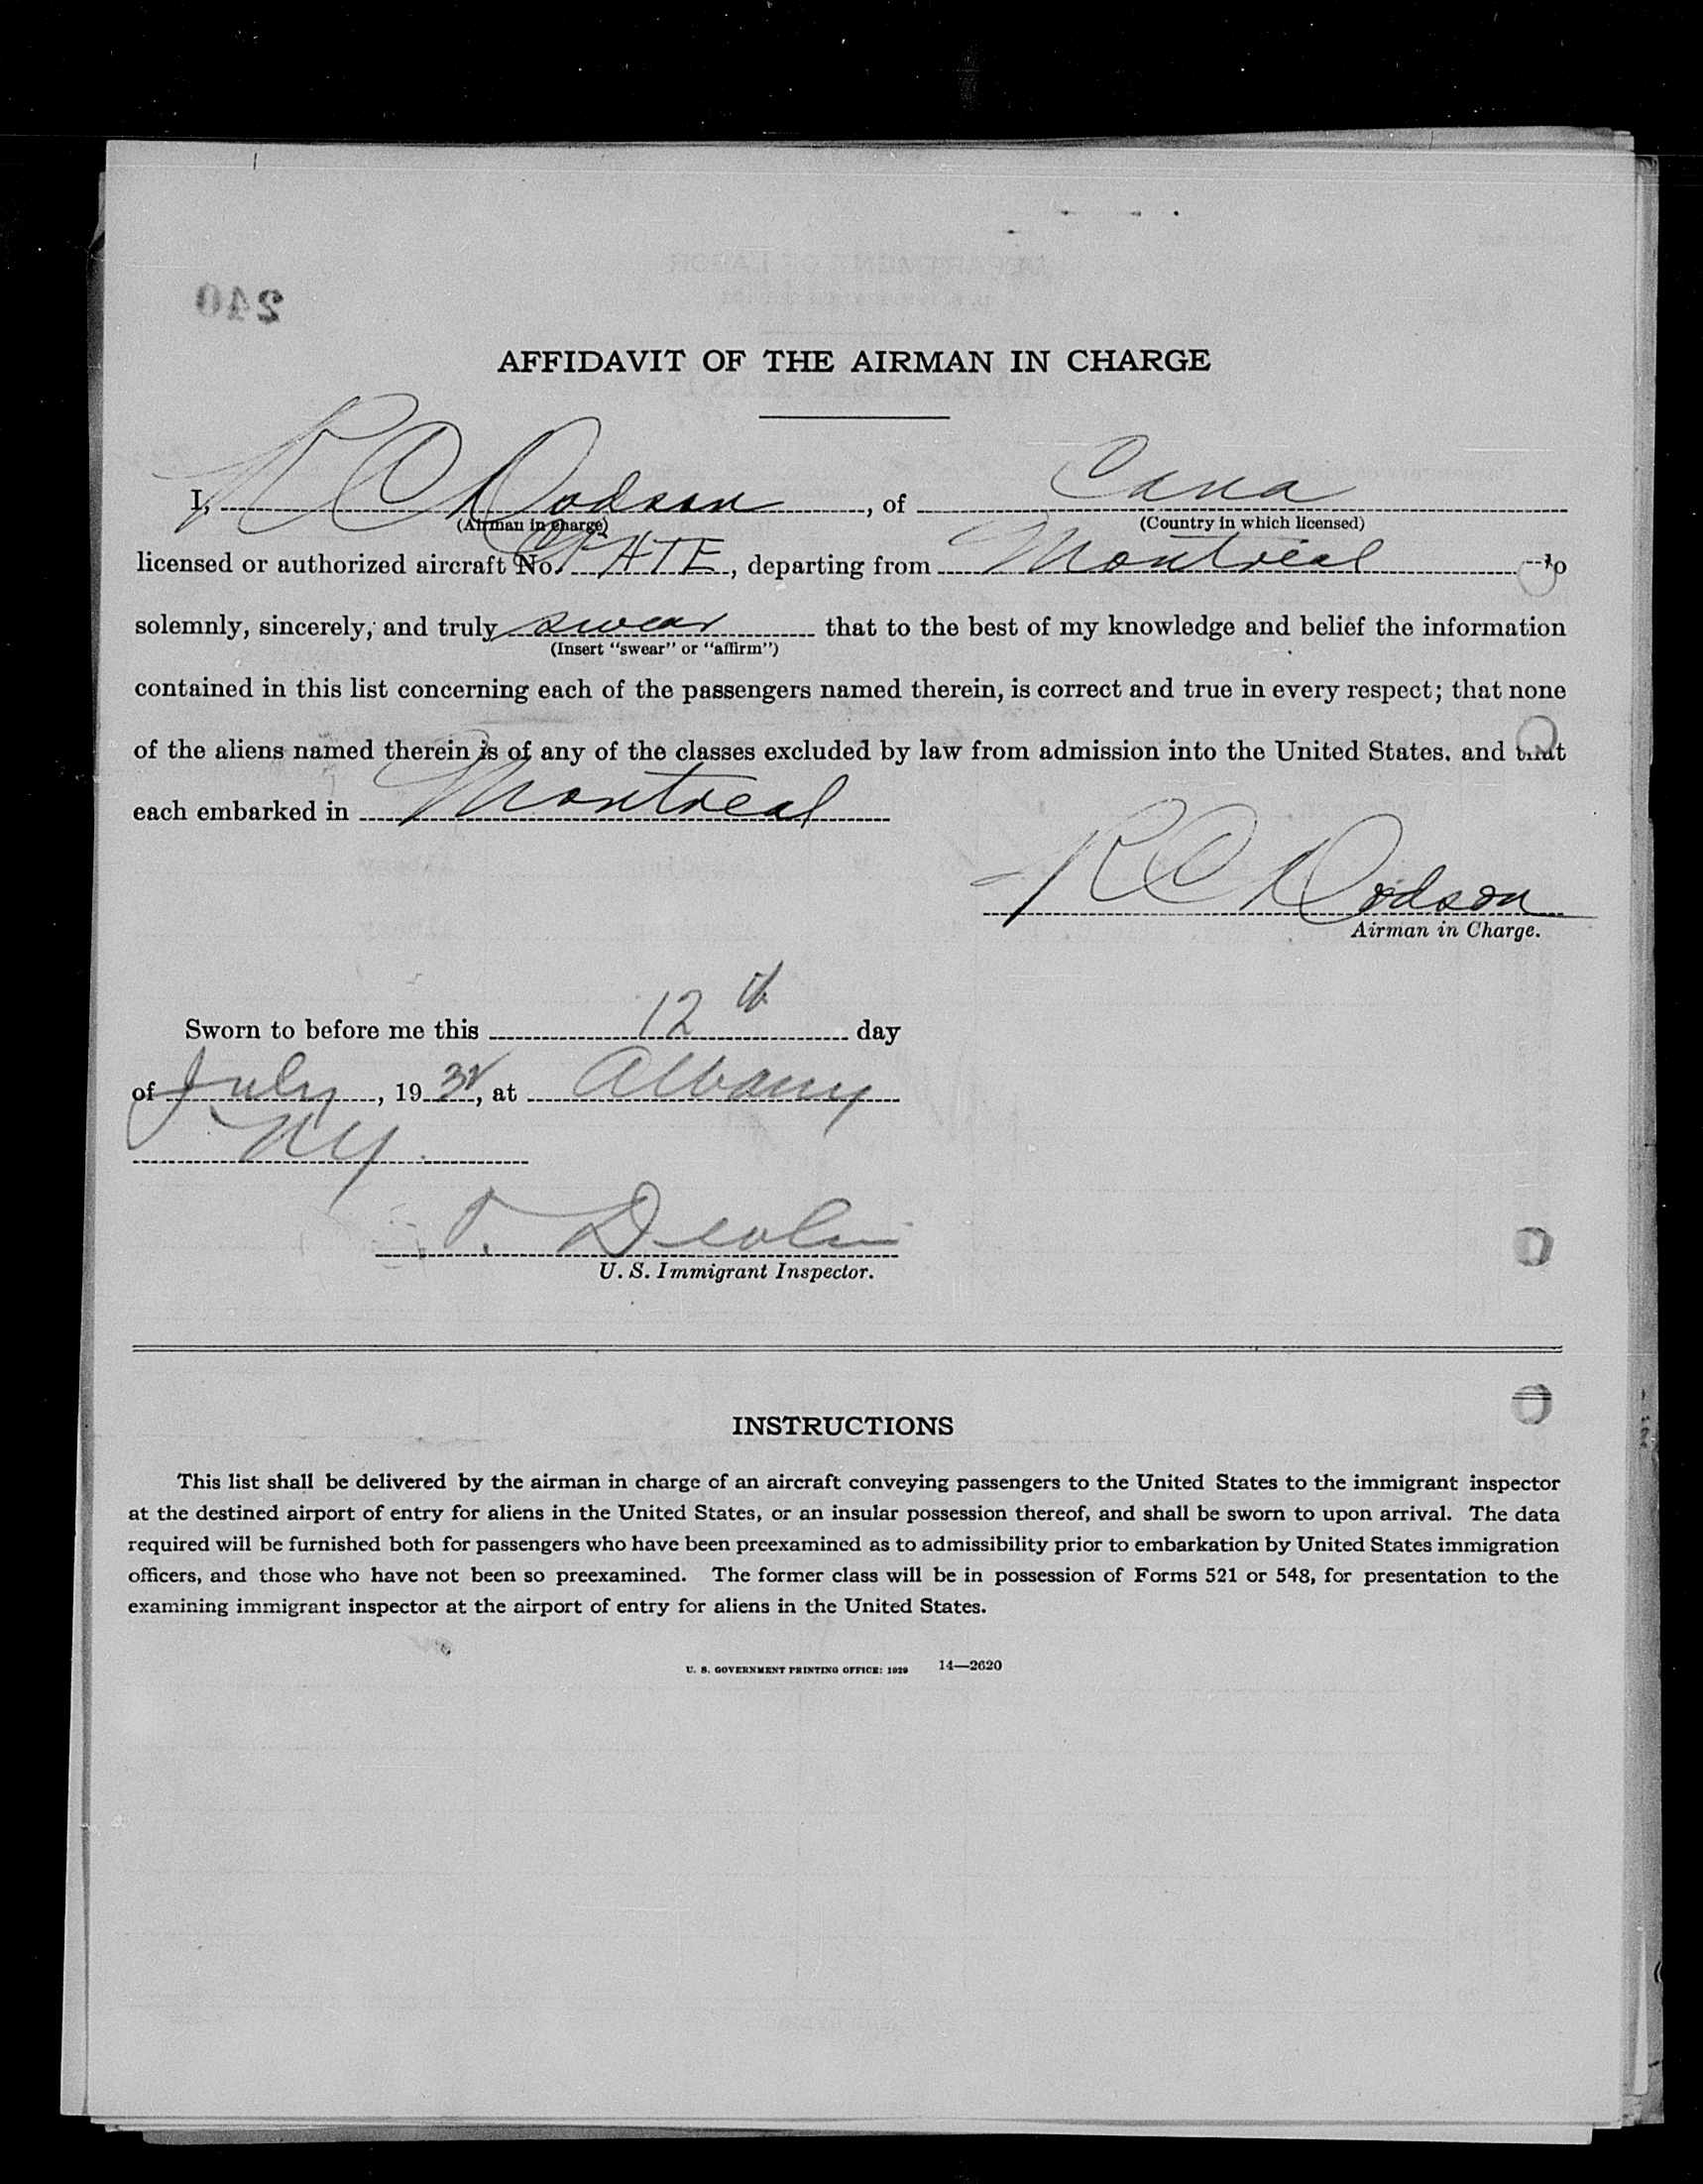 240
AFFIDAVIT OF THE AIRMAN IN CHARGE
I, R C Dodson, of Cana
(Airman in charge) (Country in which licensed)
licensed or authorized aircraft No. ATE, departing from Montreal to
solemnly, sincerely, and truly swear that to the best of my knowledge and belief the information
(Insert "swear" or "affirm")
contained in this list concerning each of the passengers named therein, is correct and true in every respect; that none
of the aliens named therein is of any of the classes excluded by law from admission into the United States, and that
each embarked in Montreal
R C Dodson
Airman in Charge.
Sworn to before me this 12th day
of July, 19 32, at Albany
NY.
Devlin
U. S. Immigrant Inspector.
INSTRUCTIONS
This list shall be delivered by the airman in charge of an aircraft conveying passengers to the United States to the immigrant inspector
at the destined airport of entry for aliens in the United States, or an insular possession thereof, and shall be sworn to upon arrival. The data
required will be furnished both for passengers who have been preexamined as to admissibility prior to embarkation by United States immigration
officers, and those who have not been so preexamined. The former class will be in possession of Forms 521 or 548, for presentation to the
examining immigrant inspector at the airport of entry for aliens in the United States.
U. S. GOVERNMENT PRINTING OFFICE: 1929 14—2620